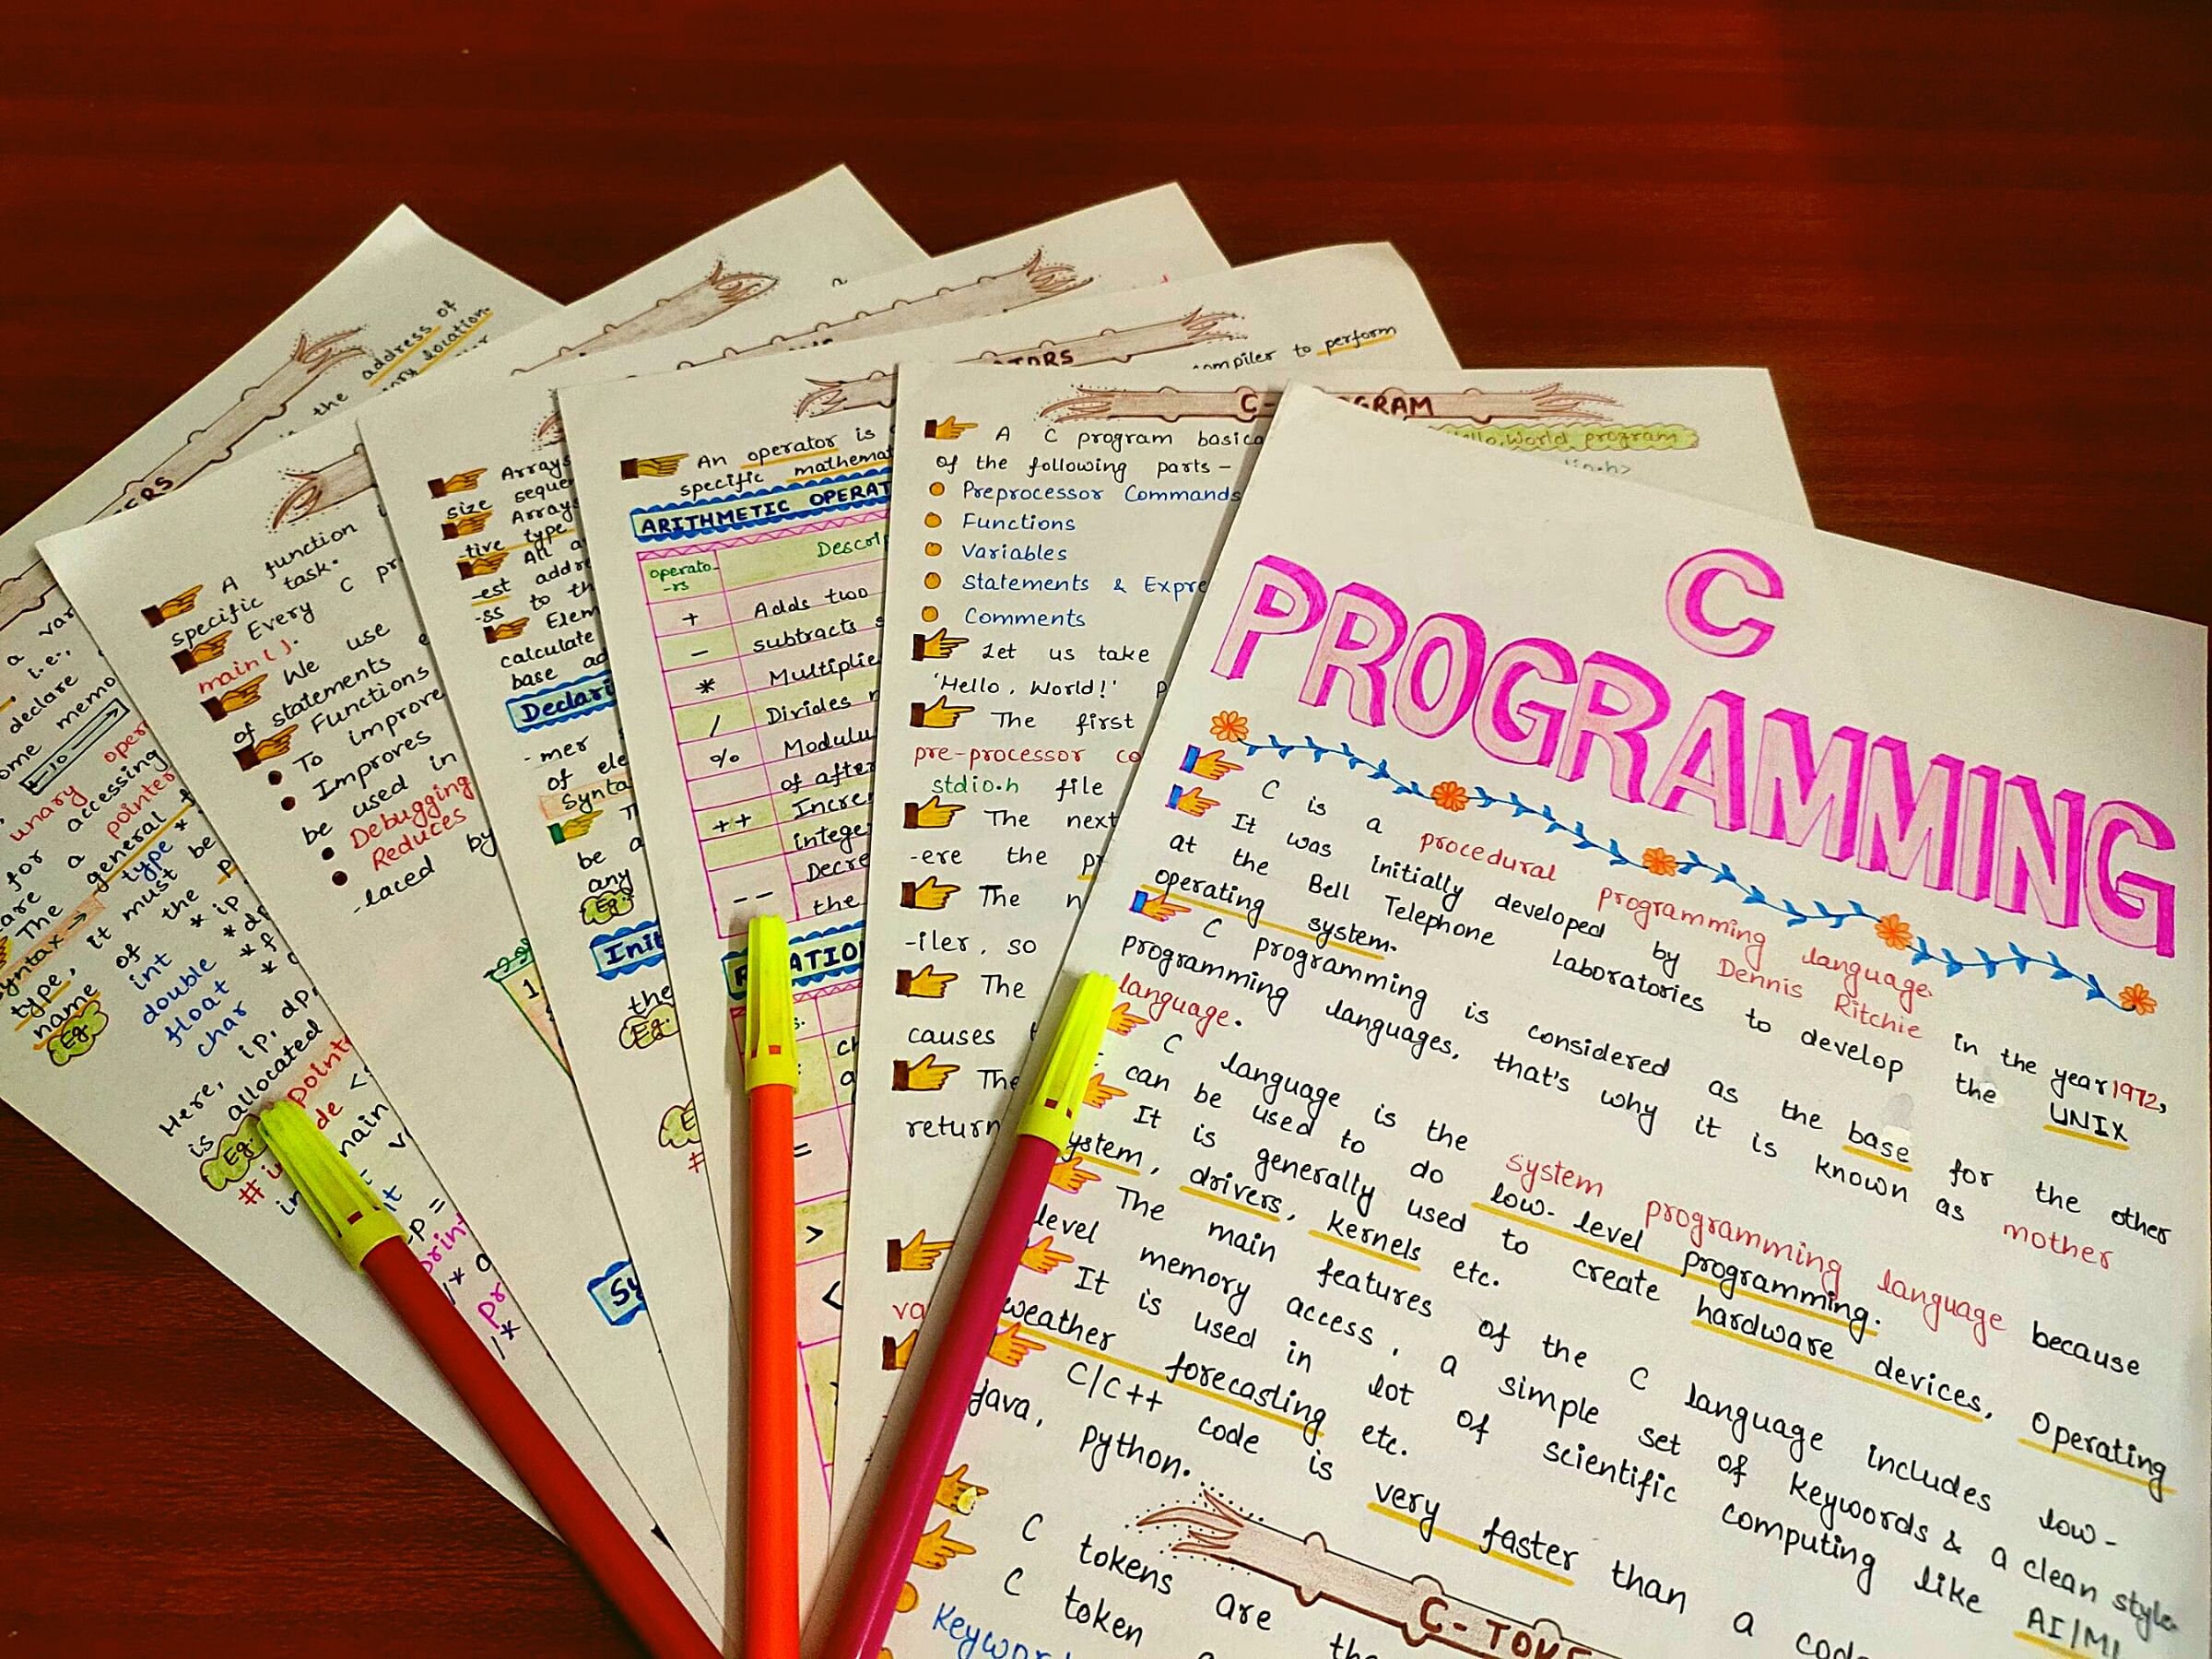 C
PROGRAMMING
C is a procedural programming language.
It was initially developed by Dennis Ritchie in the year 1972,
at the Bell Telephone Laboratories to develop the UNIX
operating system.
C programming is considered as the base for the other
programming languages, that's why it is known as mother
language.
C language is the system programming language because
can be used to do low-level programming.
It is generally used to create hardware devices, Operating
ystem, drivers, kernels etc.
The main features of the C language includes low-
level memory access, a simple set of keywords & a clean style.
It is used in lot of scientific computing like AI/ML
weather forecasting etc.
C/C++ code is very faster than a code
java, python.
C-TOKE
C tokens are the
C token
Keywor
C- GRAM
A C program basica
of the following parts-
Preprocessor Commands
Functions
Variables
Statements & Expre
Comments
Let us take
'Hello, World!' p
The first
pre-processor co
stdio.h file
The next
-ere the pr
The n
-iler, so
The
causes t
The
return
va
llo, World program
compiler to perform
ATORS
An operator is
specific mathemat
ARITHMETIC OPERAT
operato-
-rs
Descrip
+ Adds two
- subtracts s
* Multiplie
/ Divides n
% Modulu
of after
++ Incre
intege
-- Decre
the
R ATIO
=
>
<
Arrays
size seque
Arrays
-tive type
All a
-est addre
-ss to th
Elem
calculate
base ad
Declari
-mer
of ele
Synta
be a
any
Eg.
Init
the
Eg.
A function i
specific task.
Every C pr
main().
We use
of statements
Functions
To improve
Improres
be used in
Debugging
Reduces
-laced by
1.
Sy
ERS
the address of
ory location.
a var
i.e.,
declare
ome memo
10
unary oper
for accessing
are a pointer
The general f
Syntax → type *
type, it must be
name of the p
Eg. int *ip
double *dp
float *f
char *c
Here, ip, dp,
is allocated
Eg. point
# i de <s
main
int
print